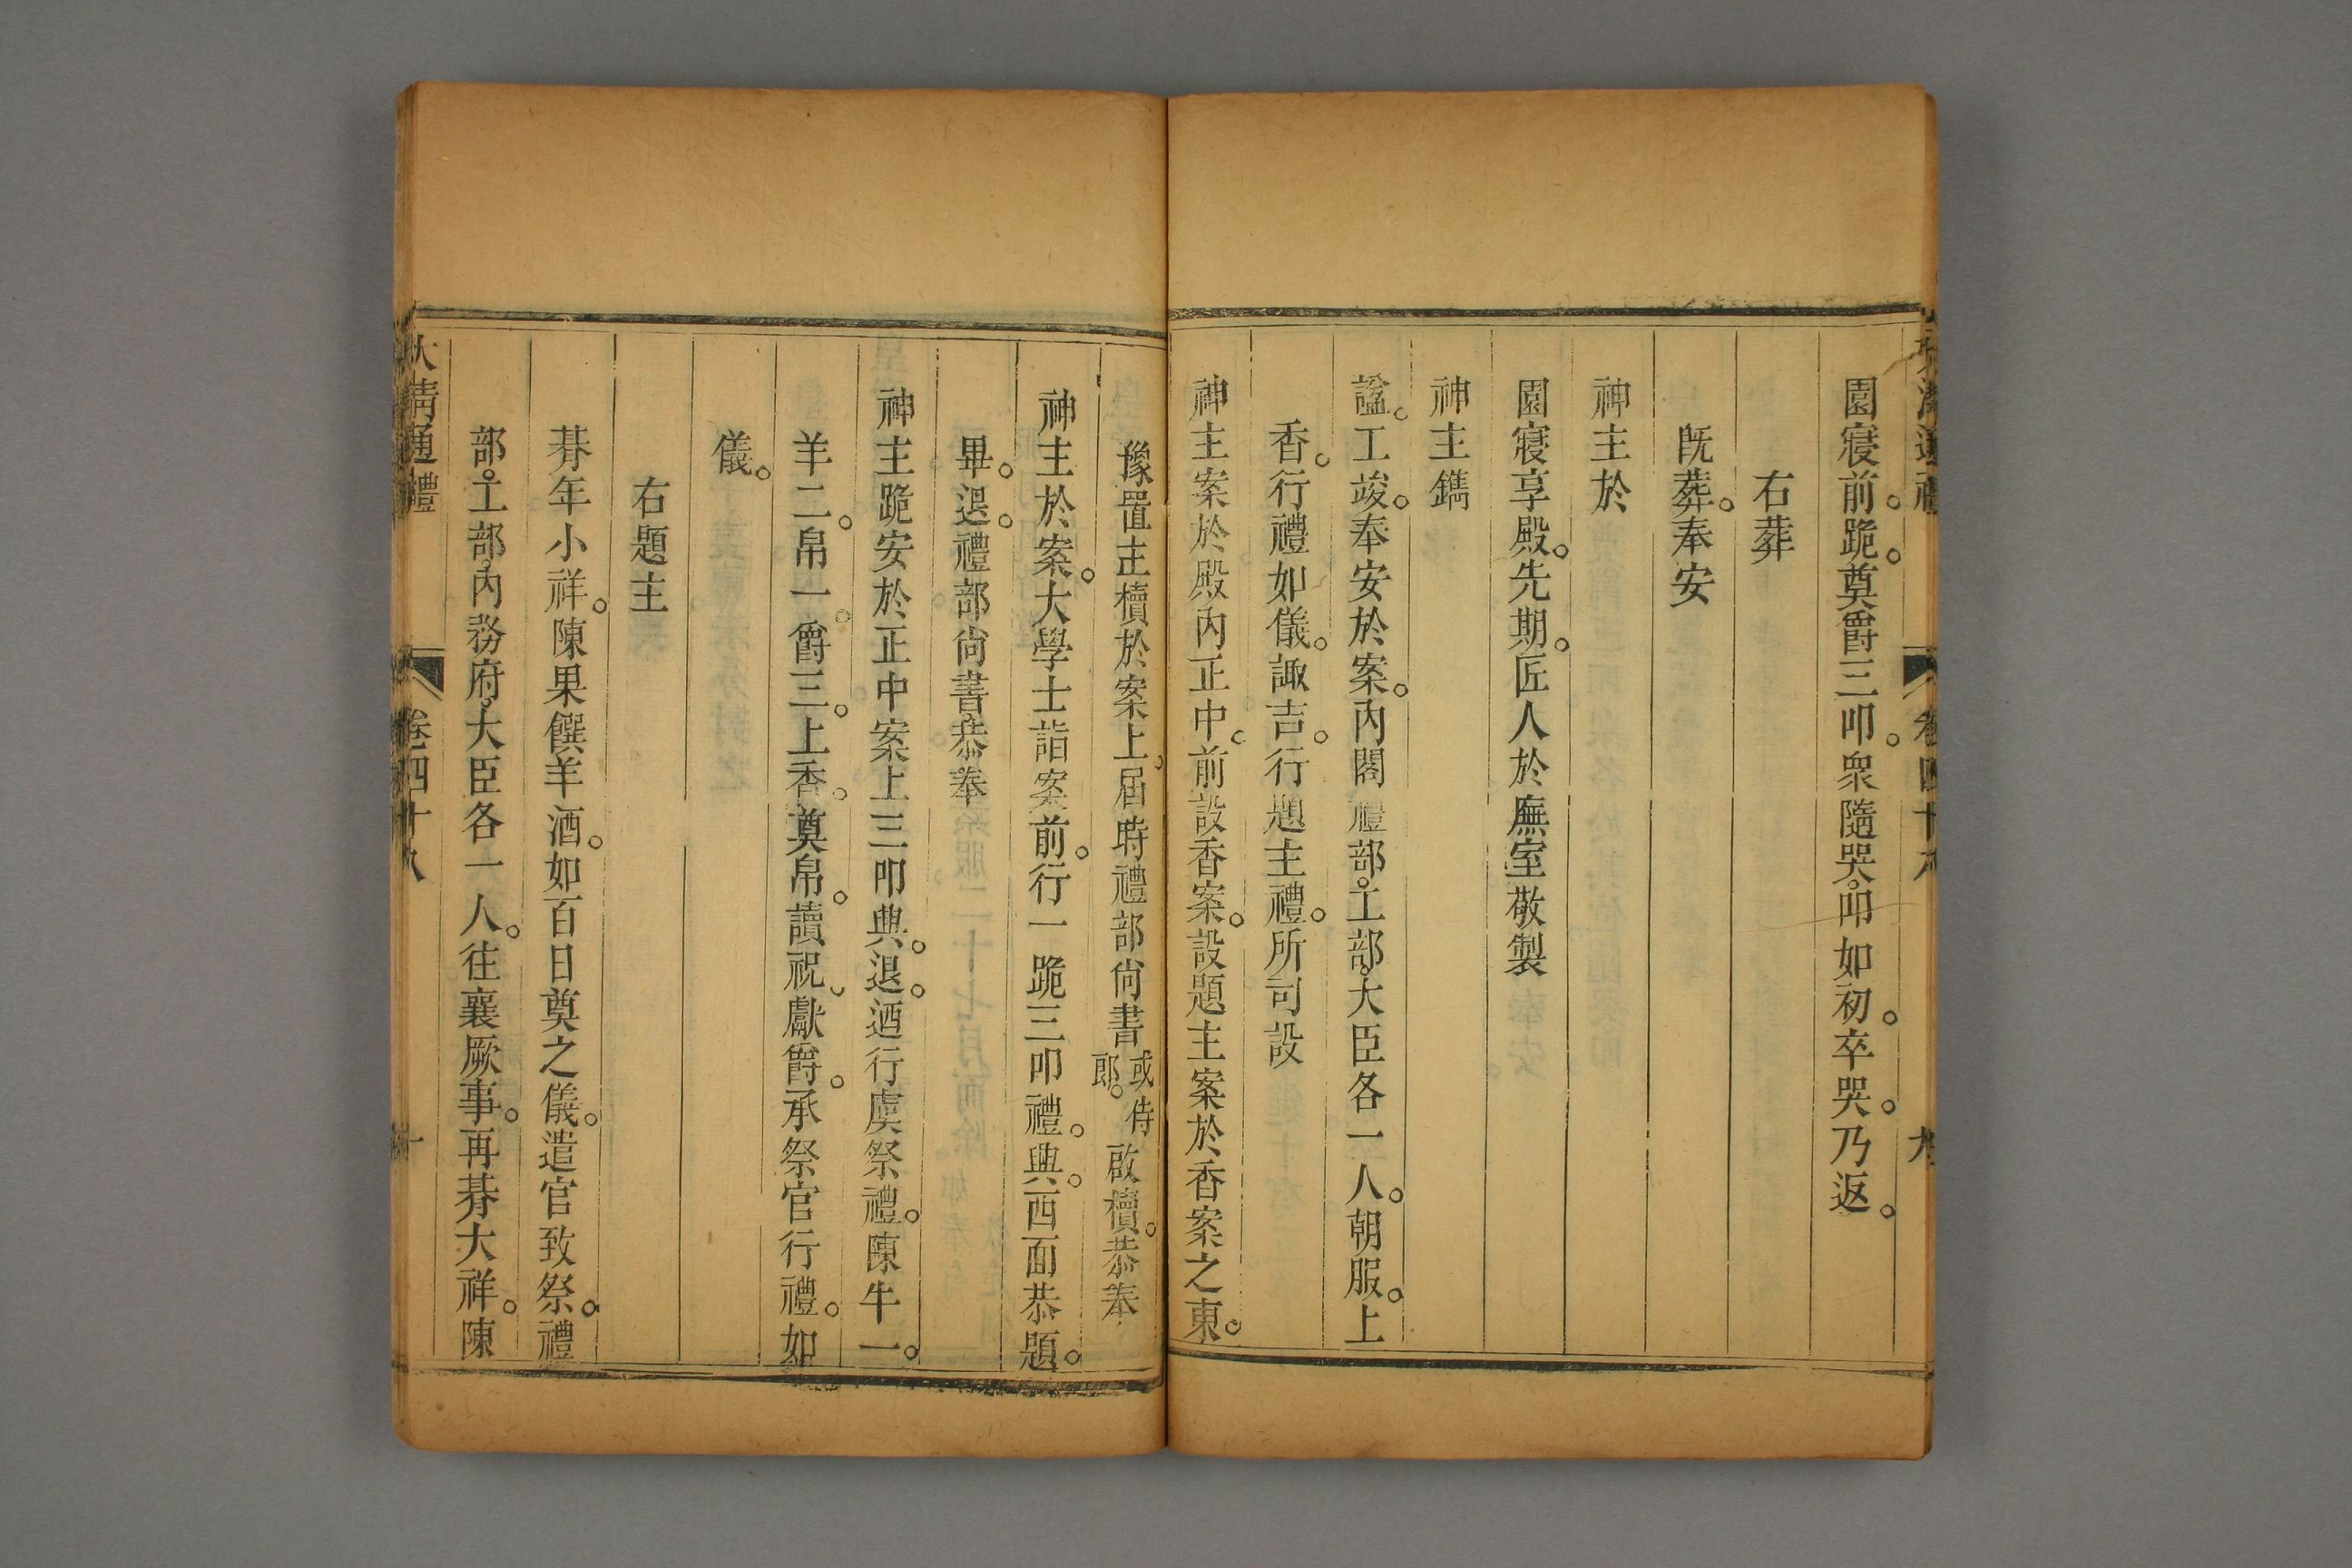 大清通禮 卷四十八 九
園寢前。跪。奠爵三叩。衆隨哭。叩如初。卒哭。乃返。
右葬
既葬。奉安
神主於
園寢享殿。先期。匠人於廡室敬製
神主鐫
諡。工竣。奉安於案。內閣禮部。工部。大臣各一人。朝服。上
香。行禮如儀。諏吉。行題主禮。所司設
神主案於殿內正中。前設香案。設題主案於香案之東。
豫置主櫝於案上。屆時禮部尙書或侍郎。啟櫝。恭奉
神主於案。大學士詣案前。行一跪三叩禮。興。西面恭題。
畢。退。禮部尙書恭奉
神主跪安於正中案上三叩興。退。迺行虞祭禮。陳牛一。
羊二。帛一。爵三。上香。奠帛。讀祝。獻爵。承祭官行禮。如
儀。
右題主
朞年小祥。陳果饌羊酒。如百日奠之儀。遣官致祭。禮
部。工部。內務府。大臣各一人。往襄厥事。再朞大祥。陳
大淸通禮 卷四十八 十